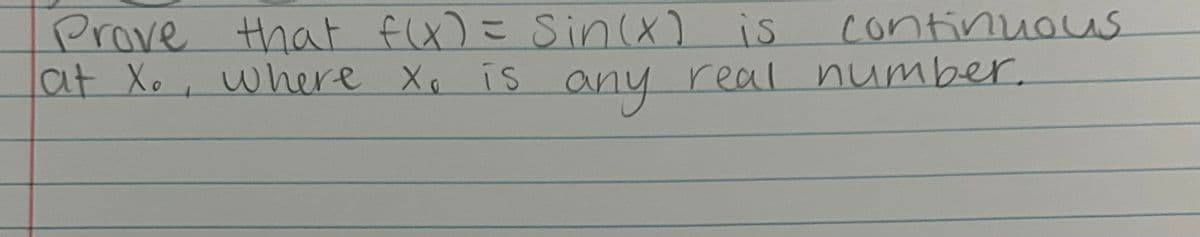 Prove that f(x) = Sin(x) is continuous
at x₀, where x₀ is any real number.